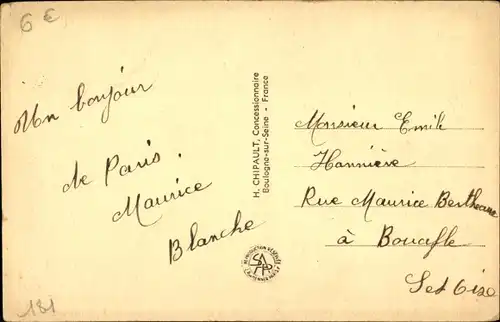 6 €
Un bonjour
de Paris.
Maurice
Blanche
H. CHIPAULT, Concessionnaire
Boulogne-sur-Seine - France
SAPP
Monsieur Emile
Hannière
Rue Maurice Berteaux
à Bouafle
Set Oise
181